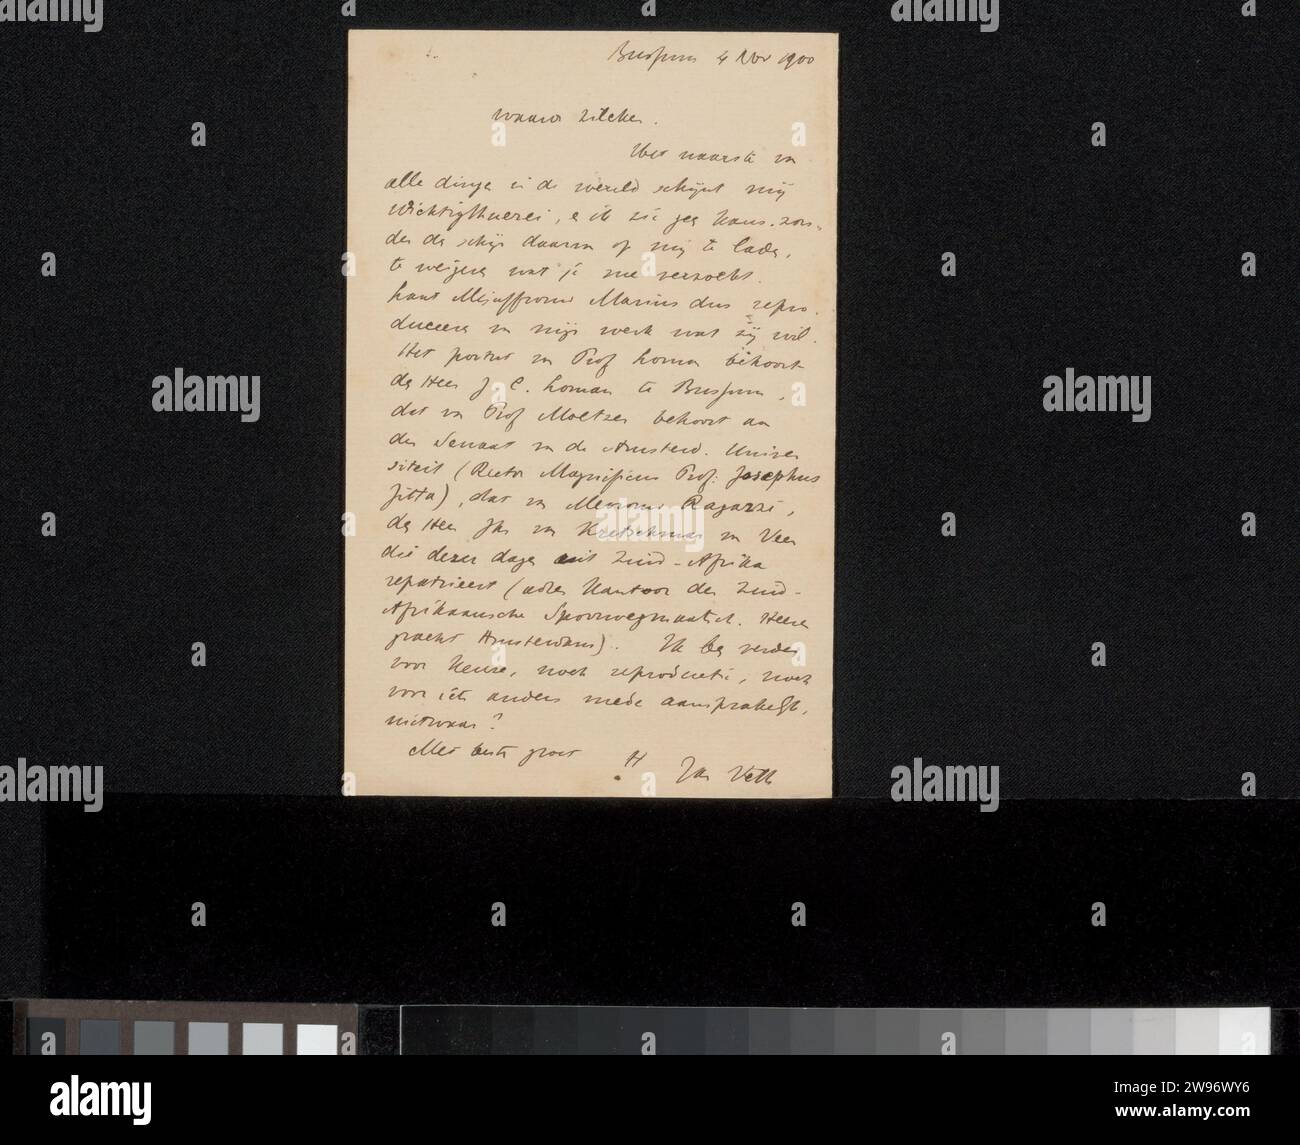 Bussum 4 Nov 1900
Waarde Zilcken.
Het naarste van
alle dingen in de wereld schijnt mij
Wichtigthuerei, en ik zie geen kans. zon-
der de schijn daarvan op mij te laden,
te weigeren wat je me verzoekt.
Laat Mejuffrouw Marius dus repro-
duceeren van mijn werk wat zij wil.
Het portret van Prof Loman behoort
den Heer J C. Loman te Bussum,
dat van Prof Moltzer behoort aan
den Senaat van de Amsterd. Univer
siteit (Rector Magnificus Prof: Josephus
Jitta), dat van Mevrouw Ragazzi,
den Heer Jhr van Kretschmar van Veen
die dezer dagen uit Zuid-Afrika
repatrieert (adres Kantoor der Zuid-
Afrikaansche Spoorwegmaatsch. Heeren
gracht Amsterdam). Ik ben verder
voor keuze, noch reproductie, noch
voor iets anders mede aansprakelijk,
nietwaar?
Met beste groet
Jan Veth
alamy
Image ID: 2W96WY6
www.alamy.com